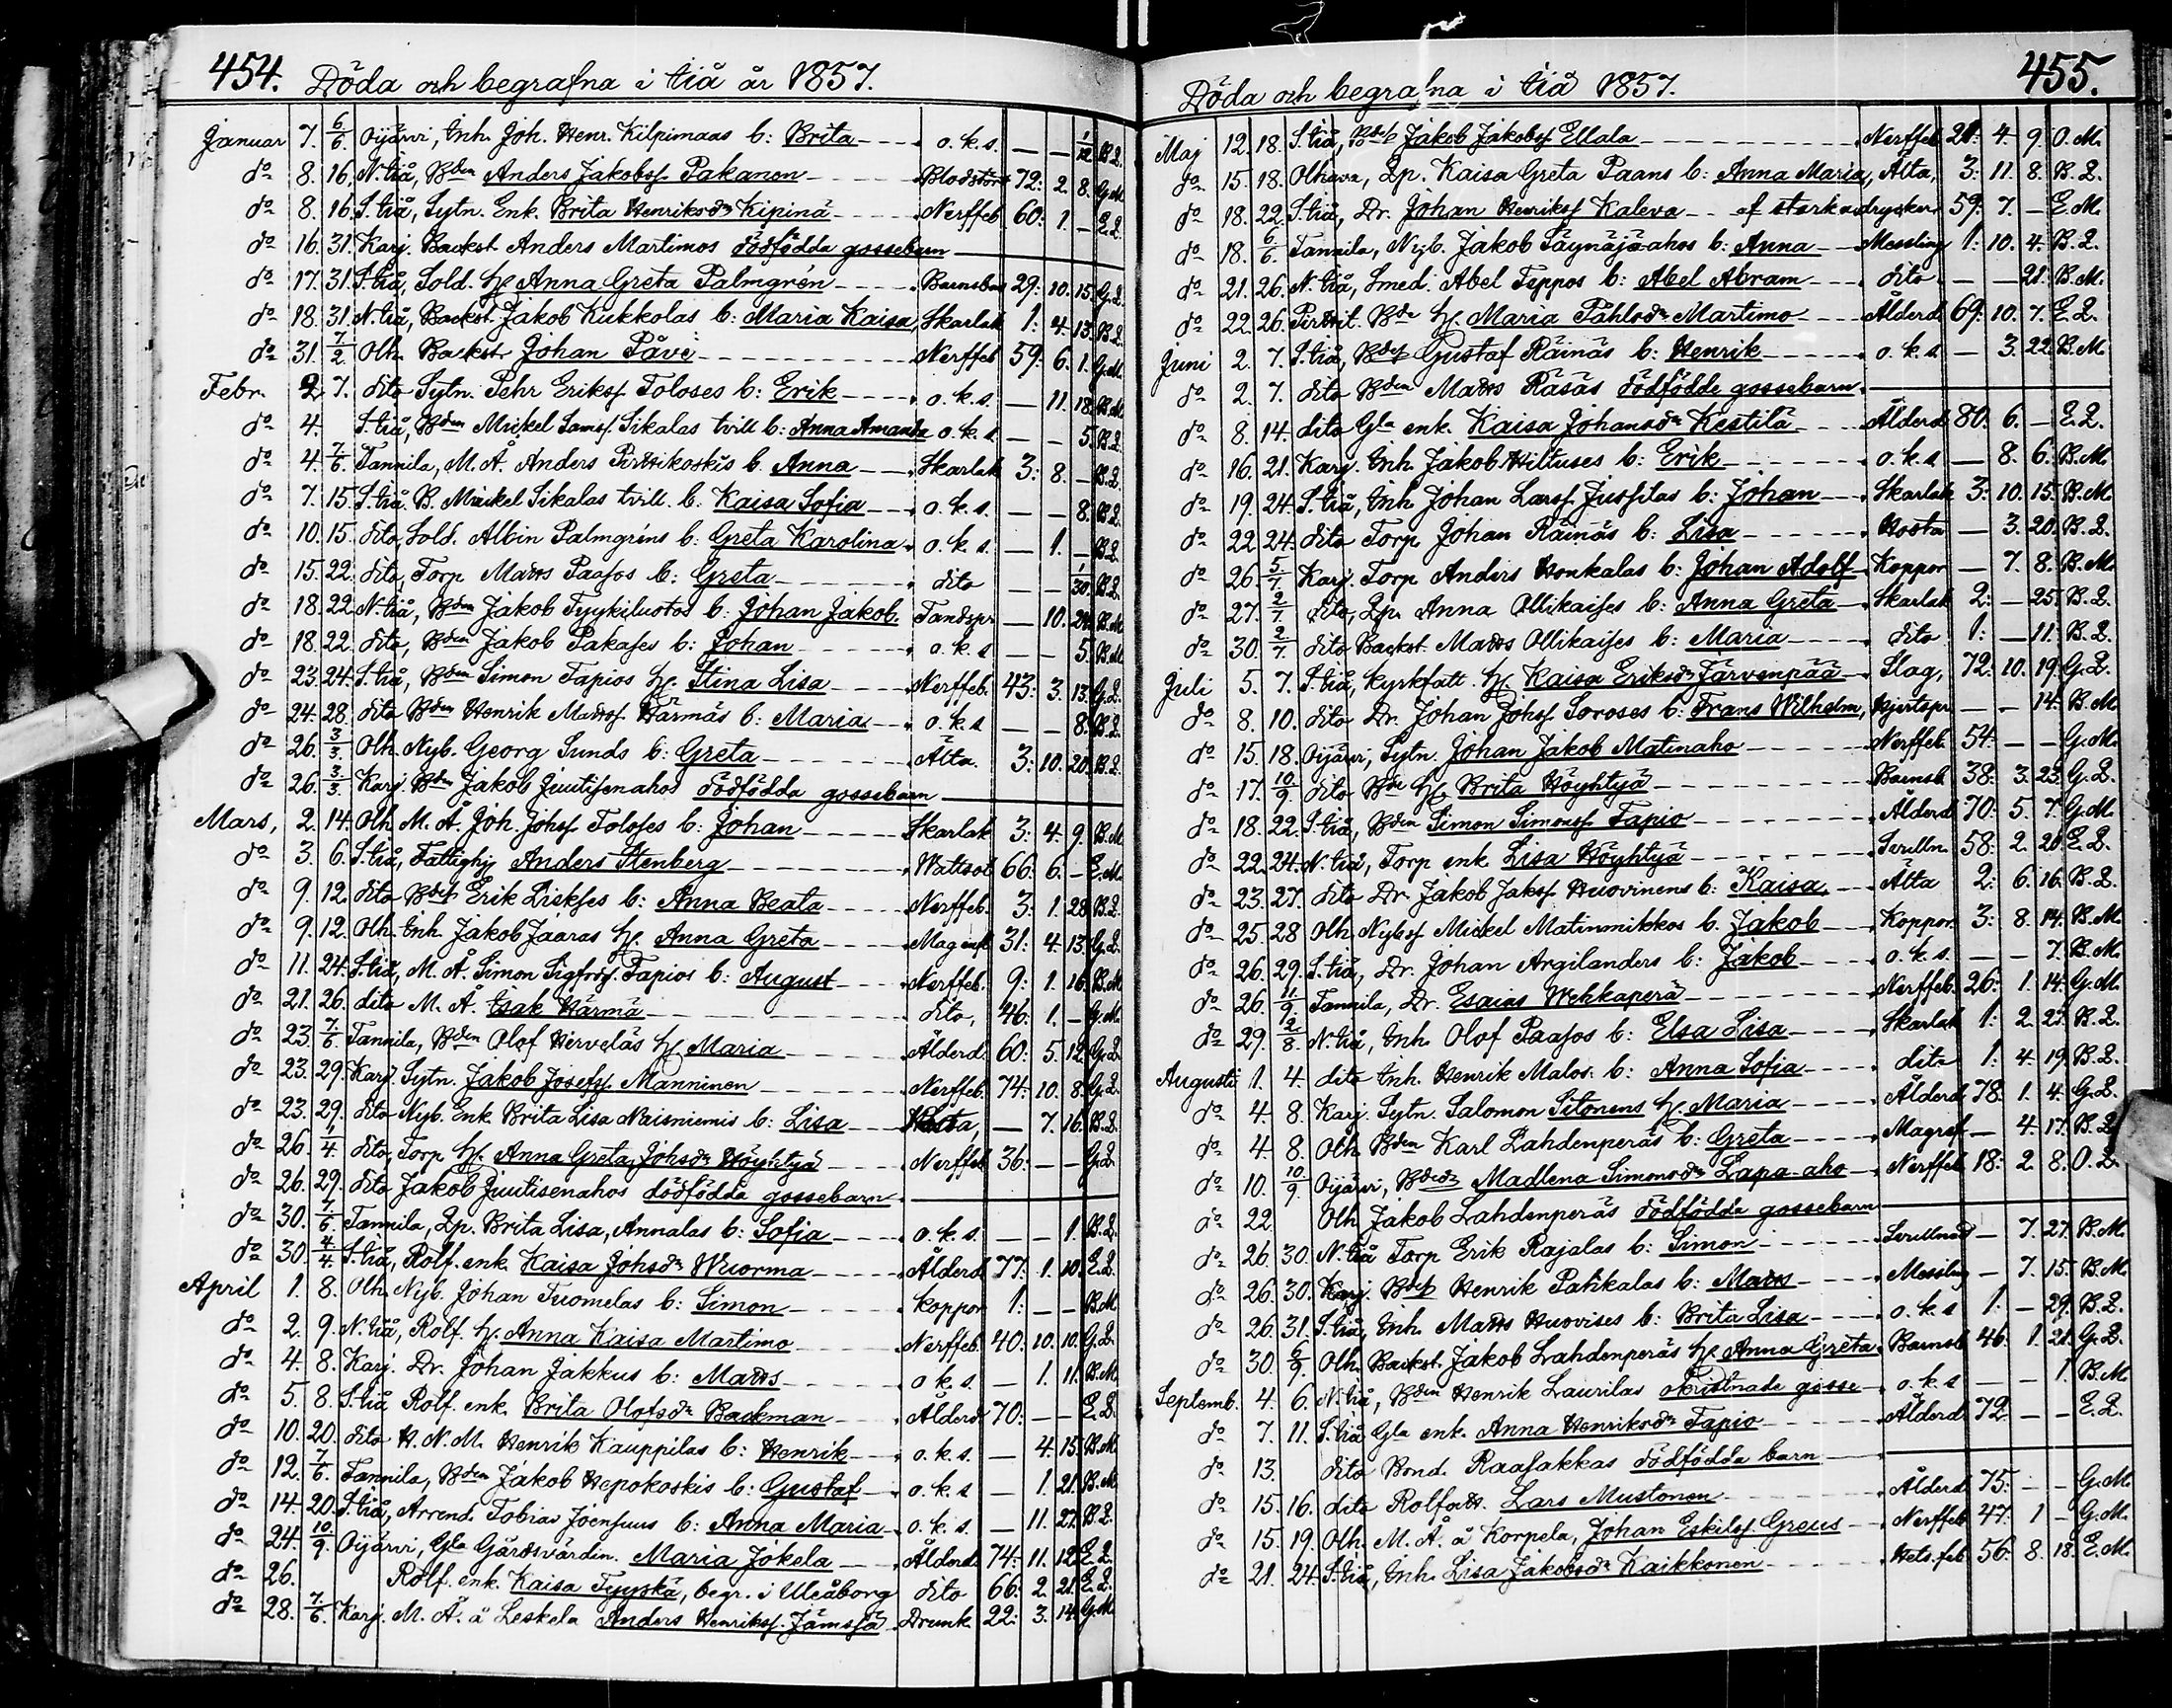 454. Döda och begrafna i Iiå år 1857.
Januar 7. 6/6. Oijärvi, Inh. Joh. Henr. Kilpimaas b: Brita o. k. s. — — 1/12 B.L.
do 8. 16. N. Iiå, Bden Anders Jakobsf Pakanen Blodstört 72: 2. 8. G.M.
do 8. 16. S. Iiå, Sytn. Enk. Brita Henriksdr Kipinä Nerffeb. 60: 1. — E.L.
do 16. 31. Karj. Backst Anders Martimos dödfödda gossebarn
do 17. 31. S. Iiå, Sold. H. Anna Greta Palmgrén Barnsbörd 29: 10. 15. G.L.
do 18. 31. N. Iiå, Backst. Jakob Kukkolas b: Maria Kaisa, Skarlak 1: 4. 13. B.L.
do 31. 7/2 Olh. Backst. Johan Påvi Nerffeb 59: 6. 1. G.M.
Febr. 2. 7. dito Sytn. Pehr Eriksf. Toloses b: Erik o. k. s. — 11. 18. B.M.
do 4. S. Iiå, Bden Mickel Samsf. Sikalas tvill b: Anna Amanda o. k. s. — — 5. B.L.
do 4. 7/6. Tannila, M. Å. Anders Pirttikoskis b. Anna Skarlak 3: 8. — B.L.
do 7. 15. S. Iiå B. Mickel Sikalas tvill. b. Kaisa Sofia o. k. s. — — 8. B.L.
do 10. 15. dito, Sold. Albin Palmgréns b: Greta Karolina o. k. s. — 1. — B.L.
do 15. 22. dito, Torp Matts Paasos b: Greta dito — — 1/30 B.L.
do 18. 22. N. Iiå, Bden Jakob Tyykiluotos b: Johan Jakob. Tandspr. — 10. 24. B.M.
do 18. 22. dito, Bden Jakob Pakases b: Johan o. k. s — — 5. B.M.
do 23. 24. S. Iiå, Bden Simon Tapios H. Stina Lisa Nerffeb. 43: 3. 13. G.L.
do 24. 28. dito Bden Henrik Mattsf. Härmäs b: Maria o. k. s — — 8. B.L.
do 26. 3/3. Olh. Nyb. Georg Sunds b: Greta Ålta. 3: 10. 20. B.L.
do 26. 3/3. Karj. Bden Jakob Juutisenahos dödfödda gossebarn
Mars, 2. 14. Olh M. Å. Joh. Johsf Toloses b: Johan Skarlak 3: 4. 9. B.M.
do 3. 6. S. Iiå, Fattighj Anders Stenberg Wattsot 66: 6. — E.M.
do 9. 12. dito Bdesf Erik Liskses b: Anna Beata Nerffeb. 3: 1. 28. B.L.
do 9. 12. Olh. Inh. Jakob Jaaras H. Anna Greta Mag infl 31: 4. 13. G.L.
do 11. 24. S. Iiå, M. Å. Simon Sigfrsf. Tapios b: August Nerffeb. 9: 1. 16. B.M.
do 21. 26. dito M. Å. Isak Härmä dito, 46: 1. — G.M.
do 23. 7/6. Tannila, Bden Olof Hirveläs H. Maria Ålderd. 60: 5. 12. G.L.
do 23. 29. Karj. Sytn. Jakob Josefsf. Manninen Nerffeb. 74: 10. 8. G.L.
do 23. 29. dito Nyb. Enk Brita Lisa Naisniemis b: Lisa Hosta, — 7. 16. B.L.
do 26. 1/4. dito, Torp H. Anna Greta Johsdr Höyhtyä Nerffeb. 36: — — G.L.
do 26. 29. dito Jakob Juutisenahos dödfödda gossebarn
do 30. 7/6. Tannila, Lp. Brita Lisa, Annalas b: Sofia o. k. s. — — 1. B.L.
do 30. 4/4. S. Iiå, Rolf. enk. Kaisa Johsdr Wuorma Ålderd 77: 1. 10. E.L.
April 1. 8. Olh. Nyb. Johan Tuomelas b: Simon Koppor 1: — — B.M
do 2. 9. N. Iiå, Rolf. H. Anna Kaisa Martimo Nerffeb. 40: 10. 10. G.L.
do 4. 8. Karj. Dr. Johan Jakkus b: Matts o k. s. — 1. 11. B.M.
do 5. 8. S. Iiå Rolf. enk. Brita Olofsdr Backman Ålderd 70: — — E.L.
do 10. 20. dito H. N. M. Henrik Kauppilas b: Henrik o. k. s. — 4. 15. B.M.
do 12. 7/6. Tannila, Bden Jakob Hepokoskis b: Gustaf o. k. s — 1. 21. B.M.
do 14. 20. S. Iiå, Arrend. Tobias Joensuus b: Anna Maria o. k. s. — 11. 27. B.L.
do 24. 10/9. Oijärvi, Gla Gårdsvärdin. Maria Jokela Ålderd. 74: 11. 12. E.L.
do 26. Rolf. enk. Kaisa Tyyskä, begr. i Uleåborg dito 66: 2. 21. E.L.
do 28. 7/6. Karj. M. Å. å Leskela Anders Henriksf. Jämsä Drunk. 22: 3. 14. G.M.
Döda och begrafna i Iiå 1857. 455.
Maj 12. 18. S. Iiå, Bdesf Jakob Jakobsf Ellala Nerffeb. 21: 4. 9. O.M.
do 15. 18. Olhava, Lp. Kaisa Greta Paans b: Anna Maria, Ålta, 3: 11. 8. B.L.
do 18. 22. S. Iiå, Dr. Johan Henriksf Kaleva af starka drycker 59: 7. — E.M.
do 18. 6/6. Tannila, Nyb. Jakob Säynäjäahos b: Anna Messling 1: 10. 4. B.L.
do 21. 26. N. Iiå, Smed. Abel Teppos b: Abel Abram dito — — 21. B.M.
do 22. 26. Pirttit. Bde H. Maria Påhlsdr Martimo Ålderd 69: 10. 7. E.L.
Juni 2. 7. S. Iiå, Bdesf Gustaf Räinäs b: Henrik o. k. s. — 3. 22. B.M.
do 2. 7. dito Bden Matts Räsäs dödfödde gossebarn
do 8. 14. dito Gla enk. Kaisa Johansdr Kestilä Ålderd 80: 6. — E.L.
do 16. 21. Karj. Inh. Jakob Hiltuses b: Erik o. k. s — 8. 6. B.M.
do 19. 24. S. Iiå, Inh Johan Larsf. Jussilas b: Johan Skarlak 3: 10. 15. B.M.
do 22. 24. dito Torp Johan Räinäs b: Lisa Hosta — 3. 20. B.L.
do 26. 5/7. Karj. Torp Anders Honkalas b: Johan Adolf Koppor — 7. 8. B.M.
do 27. 2/7. dito, Lp. Anna Ollikaises b: Anna Greta Skarlak 2: — 25. B.L.
do 30. 2/7. dito Backst. Matts Ollikaises b: Maria dito 1: — 11. B.L.
Juli 5. 7. S. Iiå, Kyrkfatt. H. Kaisa Eriksdr Järvenpää Slag, 72: 10. 19. G.L.
do 8. 10. dito Dr. Johan Johsf Soroses b: Frans Wilhelm, Hjertspr — — 14. B.M.
do 15. 18. Oijärvi, Sytn. Johan Jakob Matinaho Nerffeb. 54: — — G.M.
do 17. 10/9. dito Bde H. Brita Höyhtyä Barnsb. 38: 3. 23. G.L.
do 18. 22. S. Iiå, Bden Simon Simonsf Tapio Ålderd 70: 5. 7. G.M.
do 22. 24. N. Iiå, Torp enk Lisa Höyhtyä Svulln. 58: 2. 20. E.L.
do 23. 27. dito Dr. Jakob Jaksf Huovinens b: Kaisa Ålta 2: 6. 16. B.L.
do 25. 28 Olh Nybsf Mickel Matinmikkos b. Jakob Koppor 3: 8. 14. B.M
do 26. 29. S. Iiå, Dr. Johan Argilanders b: Jakob o. k. s. — — 7. B.M.
do 26. 11/9. Tannila, Dr. Esaias Wehkaperä Nerffeb. 26: 1. 14. G.M.
do 29. 2/8. N. Iiå, Inh. Olof Paasos b: Elsa Lisa Skarlak 1: 2. 27. B.L.
Augusti 1. 4. dito Inh. Henrik Malos b: Anna Sofia dito 1: 4. 19. B.L.
do 4. 8. Karj. Sytn. Salomon Sitonens H. Maria Ålderd 78: 1. 4. G.L.
do 4. 8. Olh Bden Karl Lahdenperäs b: Greta Magref — 4. 17. B.L.
do 10. 10/9. Oijärvi, Bdedr Madlena Simonsdr Lapa-aho Nerffeb 18: 2. 8. O.L.
do 22. Olh. Jakob Lahdenperäs dödfödda gossebarn
do 26. 30. N. Iiå Torp Erik Rajalas b: Simon Svullnad — 7. 27. B.M.
do 26. 30. Karj. Bdesf Henrik Patikalas b: Matts Messling — 7. 15. B.M.
do 26. 31. S. Iiå, Inh. Matts Huovises b: Brita Lisa o. k. s 1: — 29. B.L.
do 30. 6/9. Olh. Backst. Jakob Lahdenperäs H. Anna Greta Barnsb 46: 1. 21. G.L.
Septemb. 4. 6. N. Iiå, Bden Henrik Laurilas okristnade gosse o. k. s — — 1. B.M.
do 7. 11. S. Iiå Gla enk. Anna Henriksdr Tapio Ålderd 72 — — E.L.
do 13. dito Bond. Raasakkas dödfödda barn
do 15. 16. dito Rolfatt. Lars Mustonen Ålderd 75: — — G.M.
do 15. 19. Olh. M. Å. å Korpela, Johan Eskilsf. Greus Nerffeb 47: 1 — G.M.
do 21. 24. S. Iiå, Inh. Lisa Jakobsdr Kaikkonen Hets. feb 56: 8. 18. E.M.